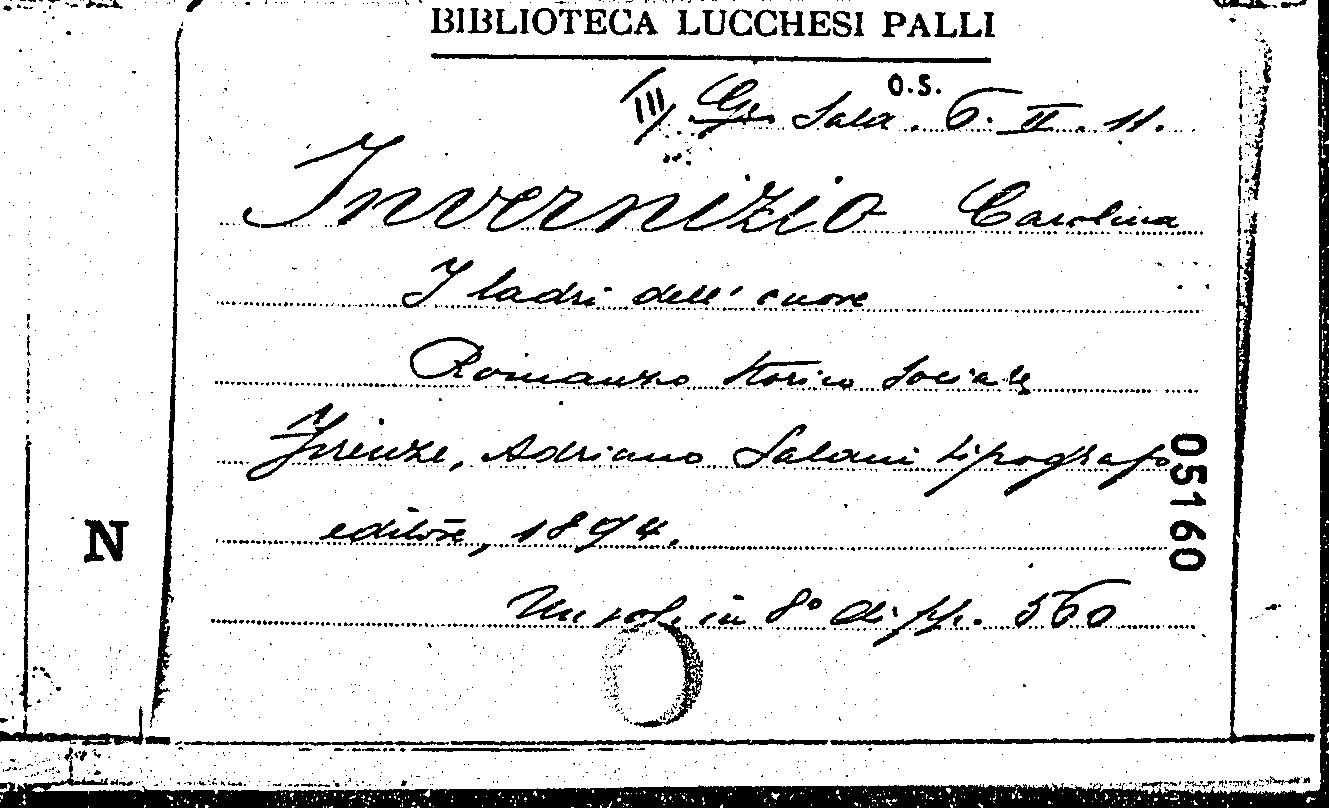 BIBLIOTECA LUCCHESI PALLI
O.S.
III Gr. Sala. 6. II. 11.
Invernizio Carolina
I ladri dell' cuore
Romanzo storico sociale
Firenze, Adriano Salani tipografo
editore, 1894.
Un vol. in 8° di pp. 560
05160
N